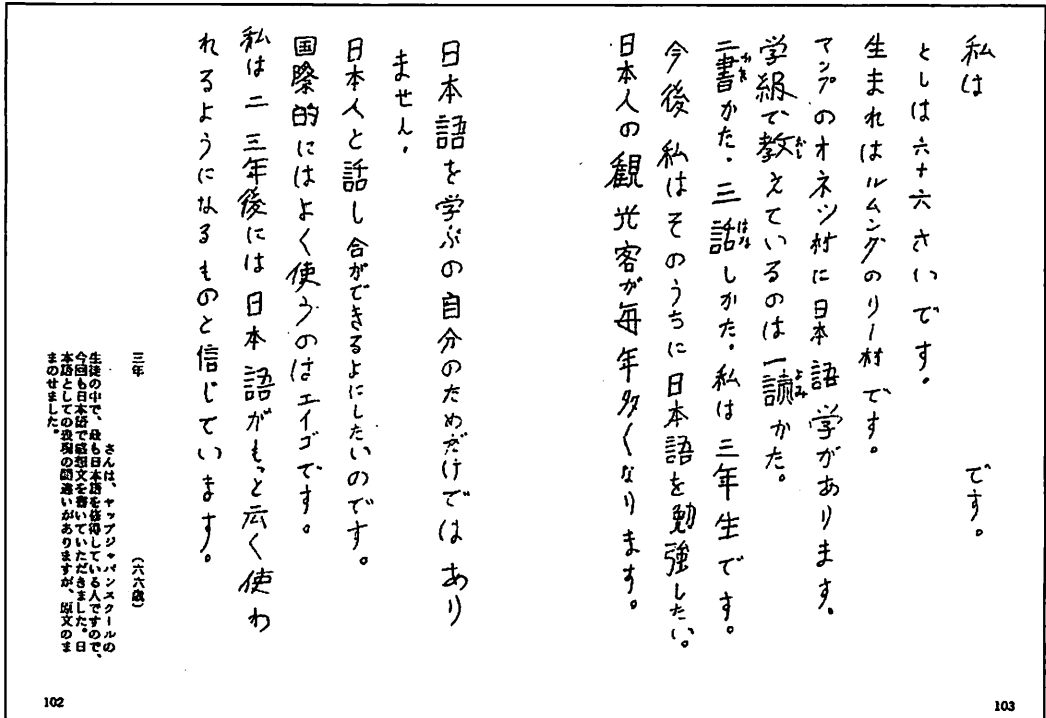 私は　　　　　　です。
としは六十六さいです。
生まれはルムングのリー村です。
マップのオネツ村に日本語学があります。
学級で教えているのは一読かた。
二書かた。三話しかた。私は三年生です。
今後 私はそのうちに日本語を勉強したい。
日本人の観光客が毎年多くなります。
日本語を学ぶの自分のためだけではあり
ません。
日本人と話し合ができるよにしたいのです。
国際的にはよく使うのはエイゴです。
私は二 三年後には日本語がもっと広く使わ
れるようになるものと信じています。
三年　　　　　　(六六歳)
さんは、ヤップジャパンスクールの
生徒の中で、最も日本語を修得している人ですので、
今回も日本語で感想文を書いていただきました。日
本語としての表現の間違いがありますが、原文のま
まのせました。
102
103